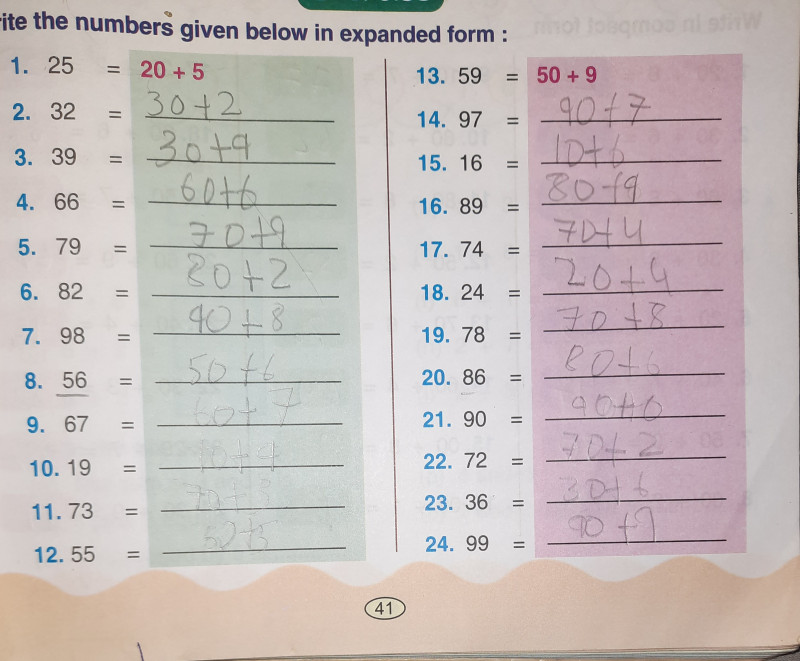 rite the numbers given below in expanded form :
1. 25 = 20 + 5
2. 32 = 30+2
3. 39 = 30+9
4. 66 = 60+6
5. 79 = 70+9
6. 82 = 80+2
7. 98 = 90+8
8. 56 = 50+6
9. 67 = 60+7
10. 19 =
11. 73 = 70+3
12. 55 = 50+5
13. 59 = 50 + 9
14. 97 = 90+7
15. 16 = 10+6
16. 89 = 80+9
17. 74 = 70+4
18. 24 = 20+4
19. 78 = 70+8
20. 86 = 80+6
21. 90 = 90+0
22. 72 = 70+2
23. 36 = 30+6
24. 99 = 90+9
41